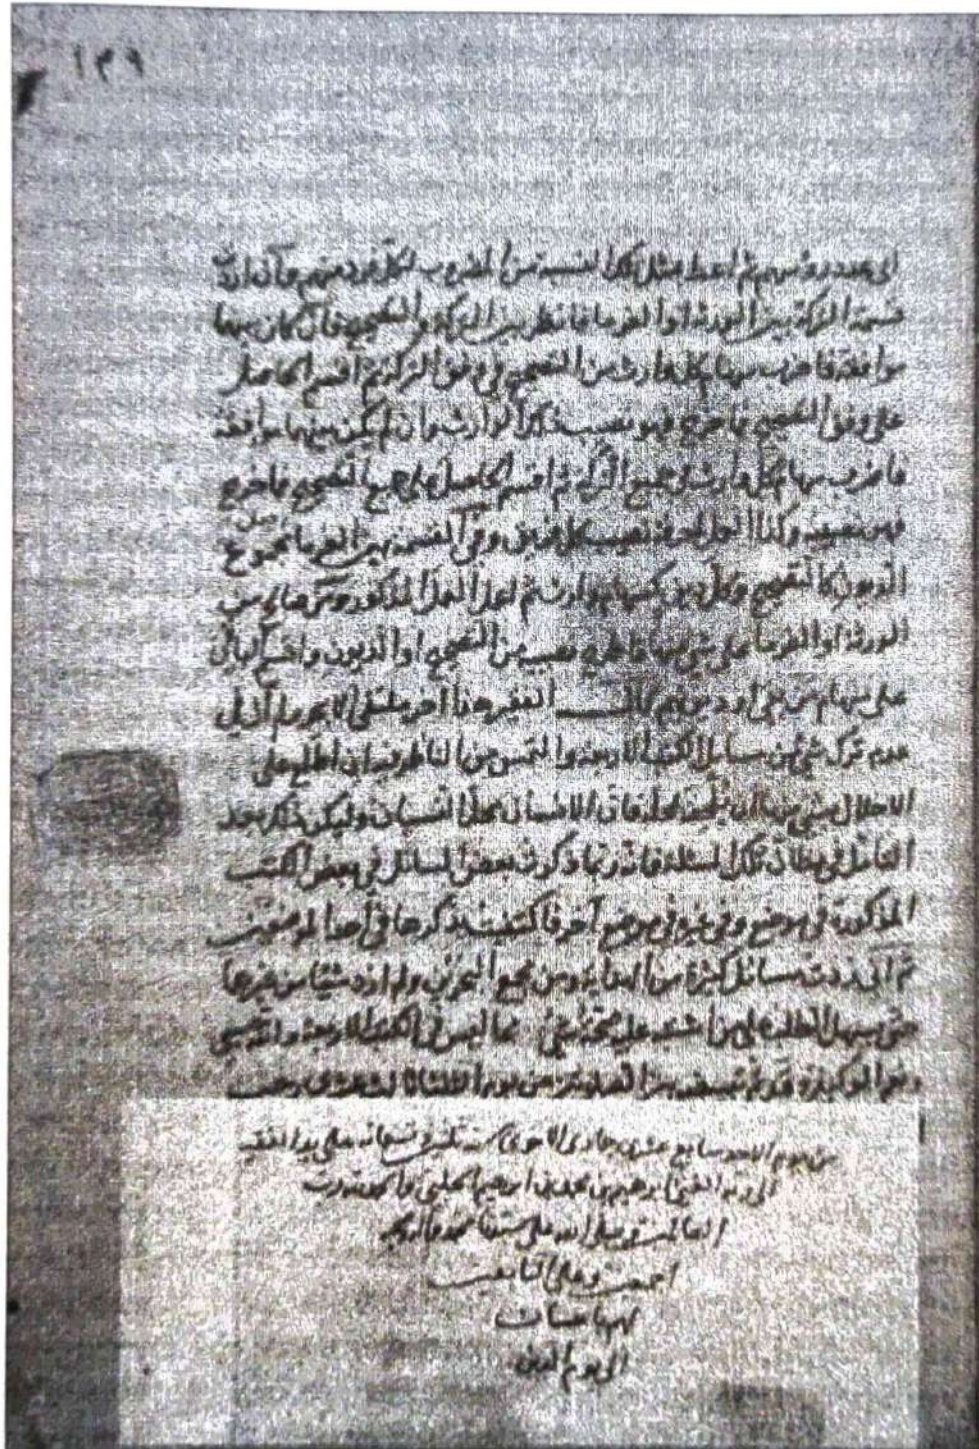 ١٣٩
الى عدد رؤسهم ثم اعط بمثل تلك النسبة من المضروب لكل فرد منهم وان اردت
قسمة التركة بين الورثة او الغرما فانظر بين التركة والتصحيح فان كان بينهما
موافقة فاضرب سهام كل وارث من التصحيح في وفق التركة ثم اقسم الحاصل
على وفق التصحيح فما خرج فهو نصيب ذلك الوارث وان لم يكن بينهما موافقة
فاضرب سهام كل وارث في جميع التركة ثم اقسم الحاصل على جميع التصحيح فما خرج
فهو نصيبه وكذا العمل لمعرفة نصيب كل فريق وفي القسمة بين الغرما اجعل مجموع
الديون كالتصحيح وكل دين كسهام وارث ثم اعمل العمل المذكور ومن صالح من
الورثة او الغرما على شئ منها فاطرح نصيبه من التصحيح او الديون واقسم الباقي
على سهام من بقي او ديونهم قال الفقير هذا آخر ملتقى الابحر ولم آل في
عدم ترك شئ من مسائل الكتب الاربعة والتمس من الناظر فيه ان اطلع على
الاخلال بشئ منها ان يلحقه بمحله فان الانسان محل النسيان وليكن ذلك بعد
التأمل في مظان تلك المسئلة فانه ربما ذكرت بعض المسائل في بعض الكتب
المذكورة في موضع وفي غيره في موضع آخر فاكتفيت بذكرها في احد الموضعين
ثم انى زدت مسائل كثيرة من الهداية ومن مجمع البحرين ولم ازد شيئا من غيرهما
حتى يسهل الطلب على من اشتبه عليه صحة شئ مما ليس في الكتب الاربعة والله حسبي
ونعم الوكيل وقد تم تبييضه بين الصلاتين من يوم الثلاثا ثالث عشرى رجب
من يوم الاحد سابع عشرى جمادى الاخرى سنة ثلثين وتسعمائة على يد الفقير
الى ربه الغني ابرهيم بن محمد بن ابرهيم الحلبي والحمد لله رب
العالمين وصلى الله على سيدنا محمد وآله وصحبه
اجمعين وعلى التابعين
لهم باحسان
الى يوم الدين